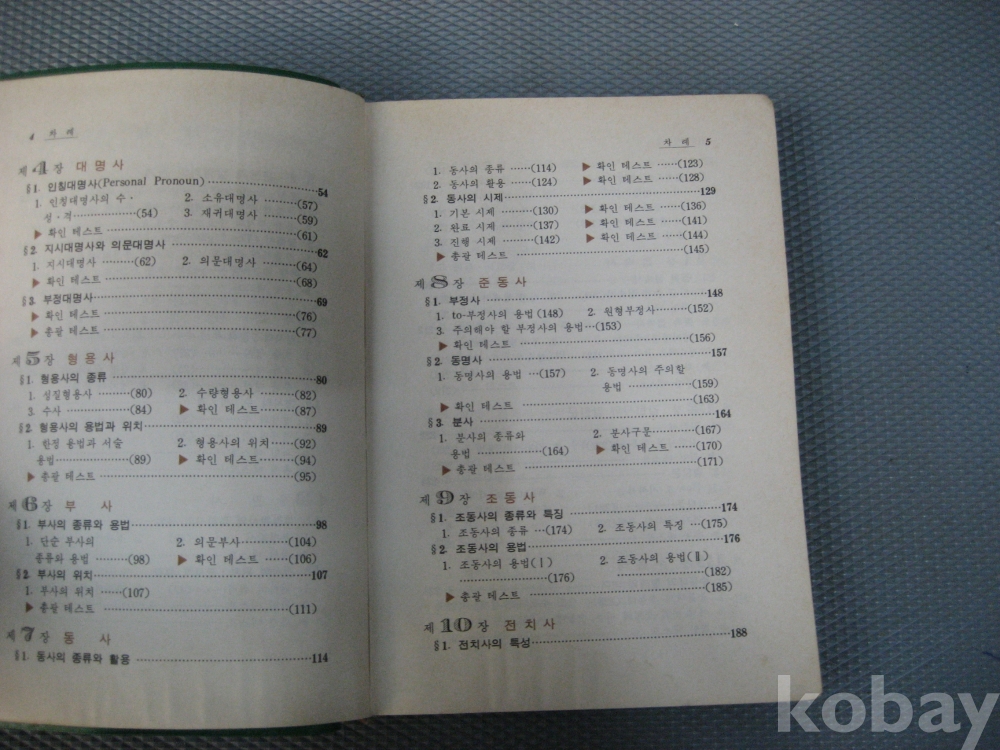 4 차 례
제4장 대명사
§1. 인칭대명사(Personal Pronoun)················54
1. 인칭대명사의 수· 2. 소유대명사······(57)
성·격················(54) 3. 재귀대명사······(59)
▶ 확인 테스트································(61)
§2. 지시대명사와 의문대명사························62
1. 지시대명사········(62) 2. 의문대명사······(64)
▶ 확인 테스트································(68)
§3. 부정대명사································69
▶ 확인 테스트································(76)
▶ 총괄 테스트································(77)
제5장 형용사
§1. 형용사의 종류································80
1. 성질형용사······(80) 2. 수량형용사······(82)
3. 수사············(84) ▶ 확인 테스트······(87)
§2. 형용사의 용법과 위치························89
1. 한정 용법과 서술 2. 형용사의 위치···(92)
용법············(89) ▶ 확인 테스트······(94)
▶ 총괄 테스트································(95)
제6장 부 사
§1. 부사의 종류와 용법························98
1. 단순 부사의 2. 의문부사······(104)
종류와 용법······(98) ▶ 확인 테스트······(106)
§2. 부사의 위치································107
1. 부사의 위치······(107)
▶ 총괄 테스트································(111)
제7장 동 사
§1. 동사의 종류와 활용························114
차 례 5
1. 동사의 종류······(114) ▶ 확인 테스트······(123)
2. 동사의 활용······(124) ▶ 확인 테스트······(128)
§2. 동사의 시제································129
1. 기본 시제······(130) ▶ 확인 테스트······(136)
2. 완료 시제······(137) ▶ 확인 테스트······(141)
3. 진행 시제······(142) ▶ 확인 테스트······(144)
▶ 총괄 테스트································(145)
제8장 준동사
§1. 부정사································148
1. to-부정사의 용법(148) 2. 원형부정사······(152)
3. 주의해야 할 부정사의 용법···(153)
▶ 확인 테스트································(156)
§2. 동명사································157
1. 동명사의 용법···(157) 2. 동명사의 주의할
용법············(159)
▶ 확인 테스트································(163)
§3. 분사································164
1. 분사의 종류와 2. 분사구문······(167)
용법············(164) ▶ 확인 테스트······(170)
▶ 총괄 테스트································(171)
제9장 조동사
§1. 조동사의 종류와 특징························174
1. 조동사의 종류···(174) 2. 조동사의 특징···(175)
§2. 조동사의 용법································176
1. 조동사의 용법(Ⅰ) 2. 조동사의 용법(Ⅱ)
················(176) ················(182)
▶ 총괄 테스트································(185)
제10장 전치사
§1. 전치사의 특성································188
kobay